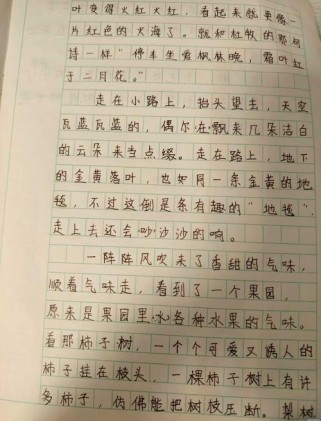 叶变得火红火红，看起来就更像一
片红色的火海了。就和杜牧的那句
诗一样“停车坐爱枫林晚，霜叶红
于二月花。”
走在小路上，抬头望去，天空
瓦蓝瓦蓝的，偶尔在飘来几朵洁白
的云朵来当点缀。走在路上，地下
的金黄落叶，也如同一条金黄的地
毯，不过这倒是条有趣的“地毯”，
走上去还会吵沙沙的响。
一阵阵风吹来了香甜的气味，
顺着气味走，看到了一个果园，
原来是果园里水各种水果的气味。
看那柿子树，一个个可爱又诱人的
柿子挂在枝头，一棵柿子树上有许
多柿子，仿佛能把树枝压断。梨树